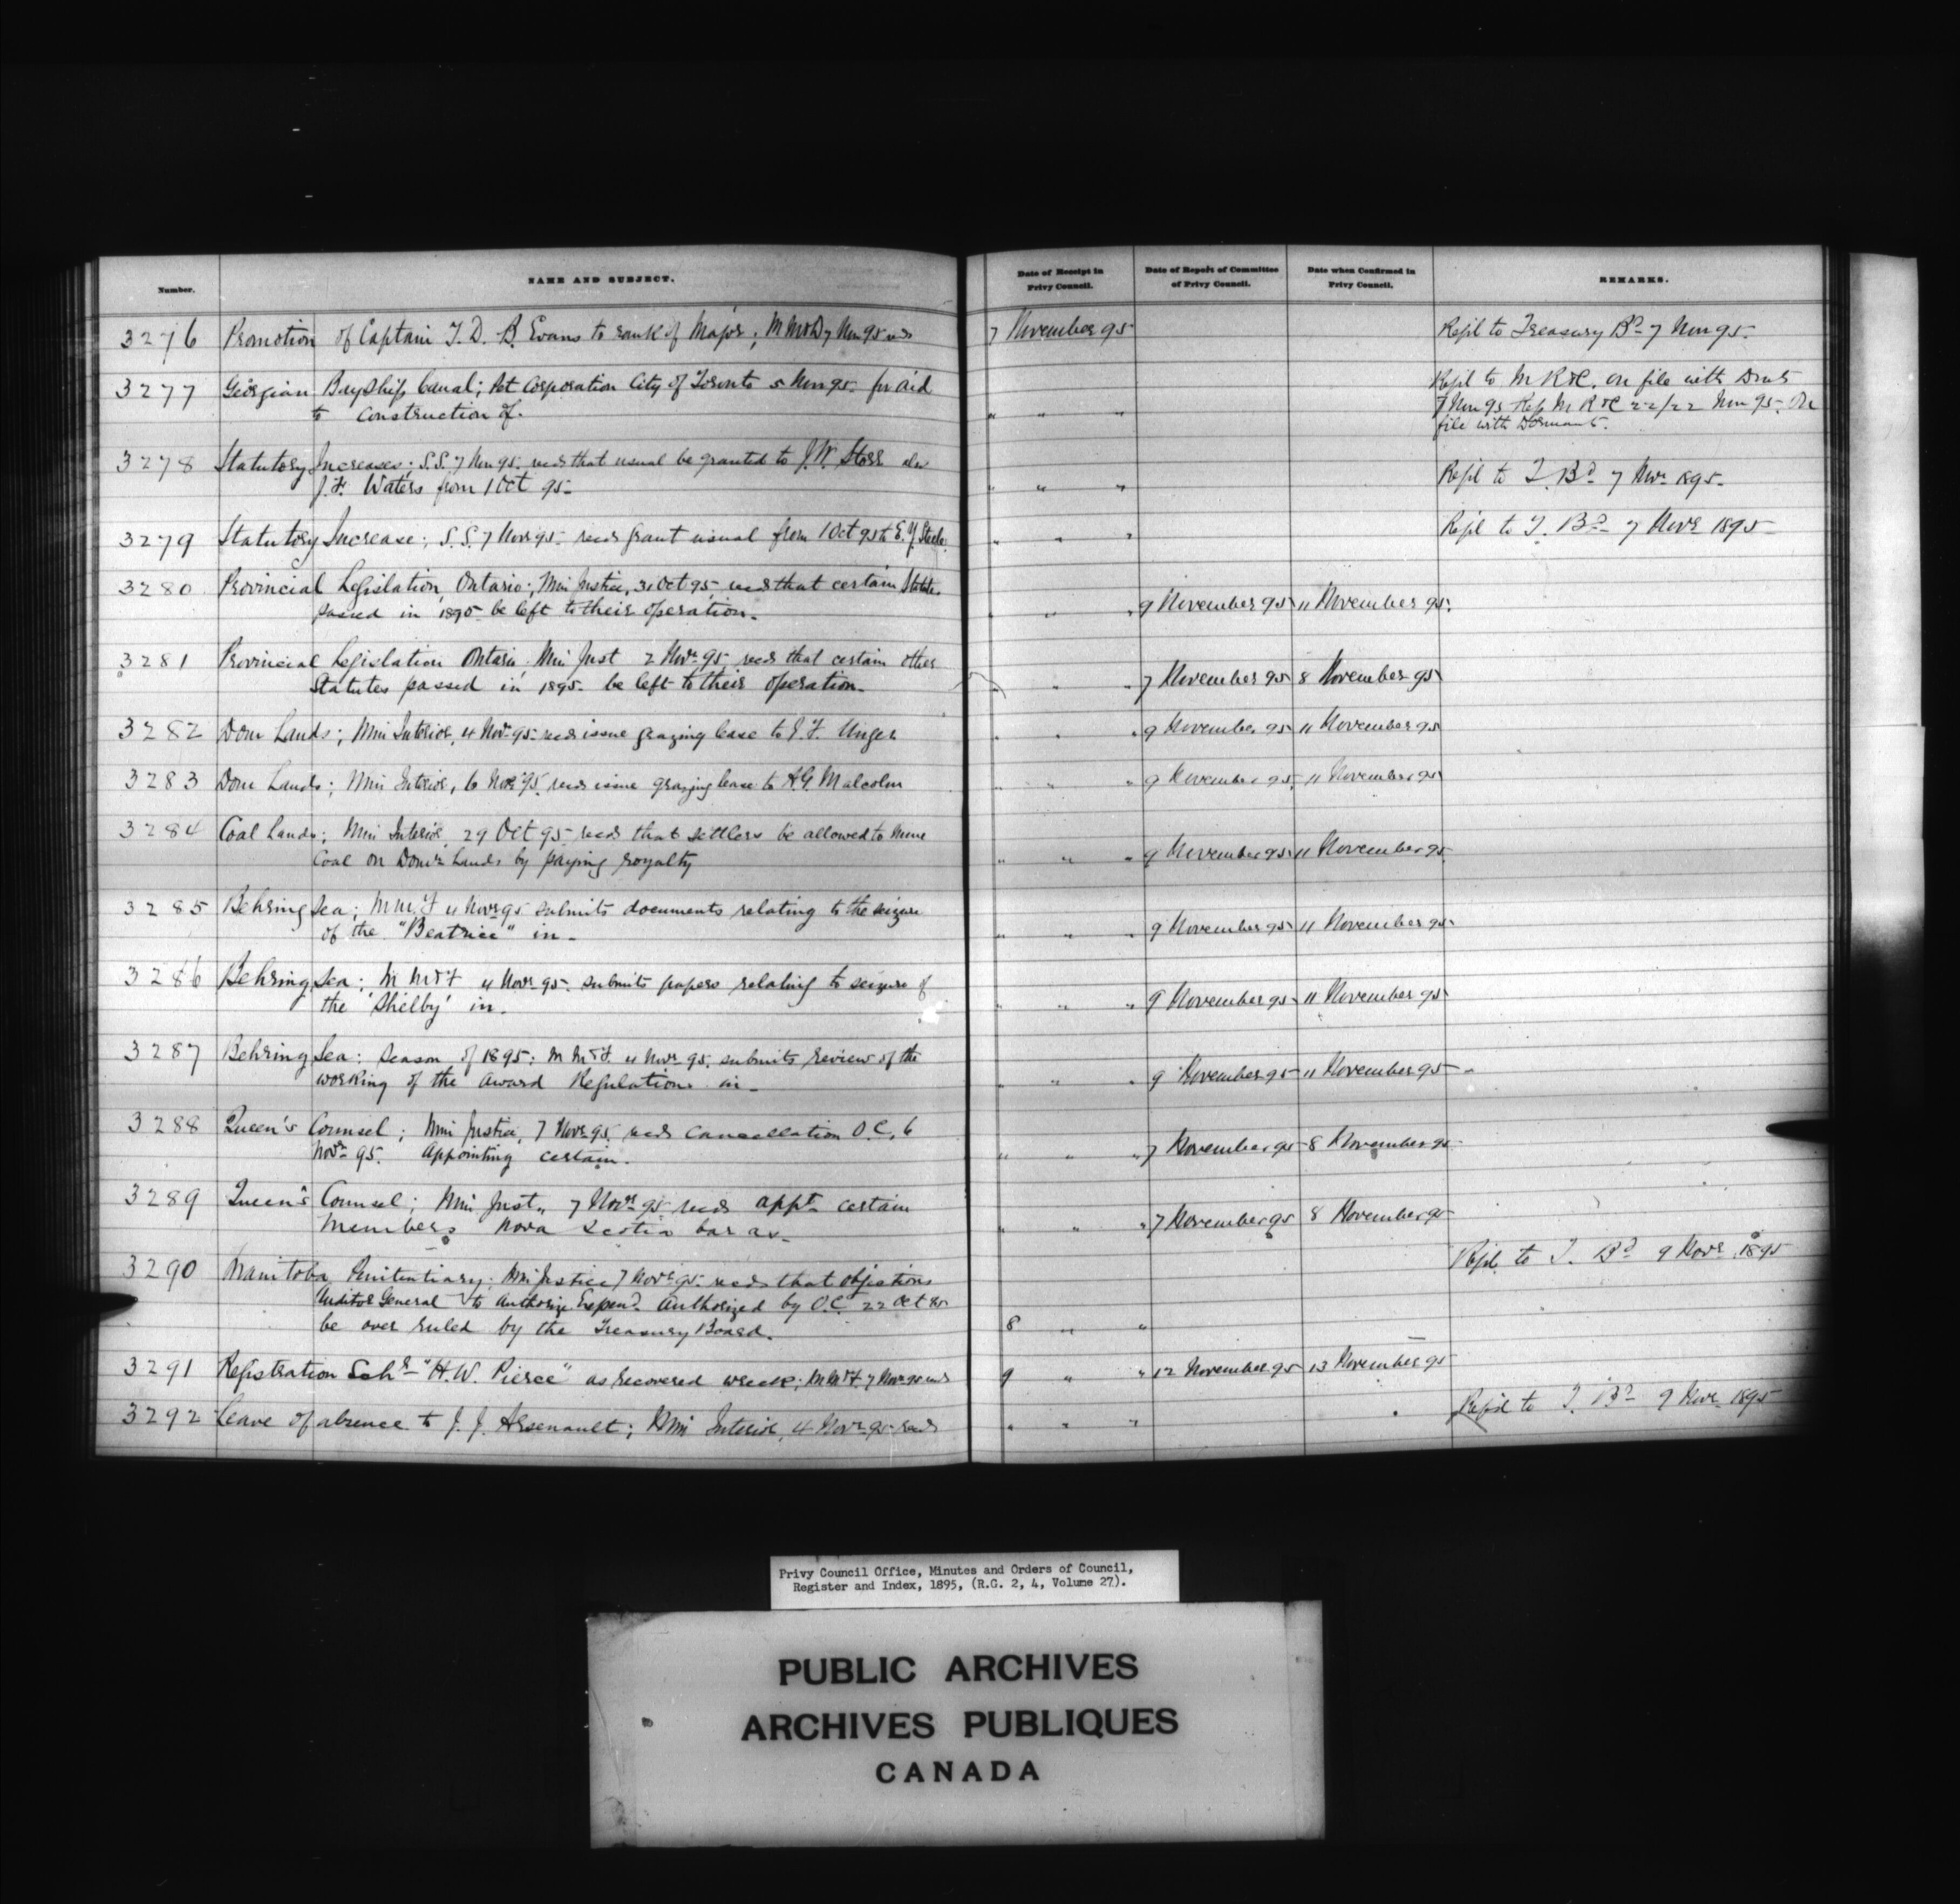 Number. NAME AND SUBJECT. Date of Receipt in Privy Council. Date of Report of Committee of Privy Council. Date when Confirmed in Privy Council. REMARKS.
3276 Promotion of Captain T. D. B. Evans to rank of Major; M M&D 7 Nov 95 recs 7 November 95 Refd to Treasury Bd 7 Nov 95.
3277 Georgian Bay Ship Canal; Pet Corporation City of Toronto 5 Nov 95 for aid Refd to M R&C. on file with Dmts
to construction of. " " " 7 Nov 95 Rep M R&C 22/22 Nov 95. On
file with Dormants.
3278 Statutory Increases; S.S. 7 Nov 95. recs that usual be granted to J. W. Storr also
J. F. Waters from 1 Oct 95. " " " Refd to T. Bd 7 Nov 1895.
3279 Statutory Increase; S.S. 7 Nov 95 recs grant usual from 1 Oct 95 to E. Y. Steele. " " " Refd to T. Bd 7 Novr 1895
3280 Provincial Legislation, Ontario; Min Justice, 31 Oct 95 recs that certain Statutes
passed in 1895 be left to their operation. " " " 9 November 95 11 November 95.
3281 Provincial Legislation Ontario Min Just 2 Novr 95 recs that certain other
Statutes passed in 1895 be left to their operation. " " " 7 November 95 8 November 95
3282 Dom Lands; Min Interior, 4 Nov 95 recs issue grazing lease to E. F. Unger " " " 9 November 95 11 November 95
3283 Dom Lands; Min Interior, 6 Nov 95. recs issue grazing lease to A G Malcolm " " " 9 November 95. 11 November 95
3284 Coal Lands; Min Interior 29 Oct 95 recs that settlers be allowed to mine
Coal on Domn Lands by paying royalty " " " 9 November 95 11 November 95
3285 Behring Sea; M M&F 4 Novr 95 submits documents relating to the seizure
of the "Beatrice" in. " " " 9 November 95 11 November 95
3286 Behring Sea; M M&F 4 Novr 95. submits papers relating to seizure of
the 'Shelby' in. " " " 9 November 95 11 November 95
3287 Behring Sea: Season of 1895: M M&F 4 Novr 95. submits review of the
working of the Award Regulations in. " " " 9 November 95 11 November 95
3288 Queen's Counsel; Min Justice, 7 Novr 95. recs cancellation O.C. 6
Novr 95. Appointing certain. " " " 7 November 95 8 November 95
3289 Queen's Counsel; Min Just., 7 Novr 95 recs appt certain
members Nova Scotia bar as. " " " 7 November 95 8 November 95
3290 Manitoba Penitentiary. Min Justice 7 Novr 95. recs that objections Refd. to T. Bd 9 Novr 1895
Auditor General to Authorize Expend. authorized by O.C. 22 Oct 95
be over ruled by the Treasury Board. 8 " "
3291 Registration Schr "H. W. Pierce" as recovered wreck; M M&F. 7 Nov 95 recs 9 " " 12 November 95 13 November 95
3292 Leave of absence to J. J. Arsenault; Min Interior, 4 Novr 95 recs " " " Refd to T. Bd 9 Novr 1895
Privy Council Office, Minutes and Orders of Council,
Register and Index, 1895, (R.G. 2, 4, Volume 27).
PUBLIC ARCHIVES
ARCHIVES PUBLIQUES
CANADA